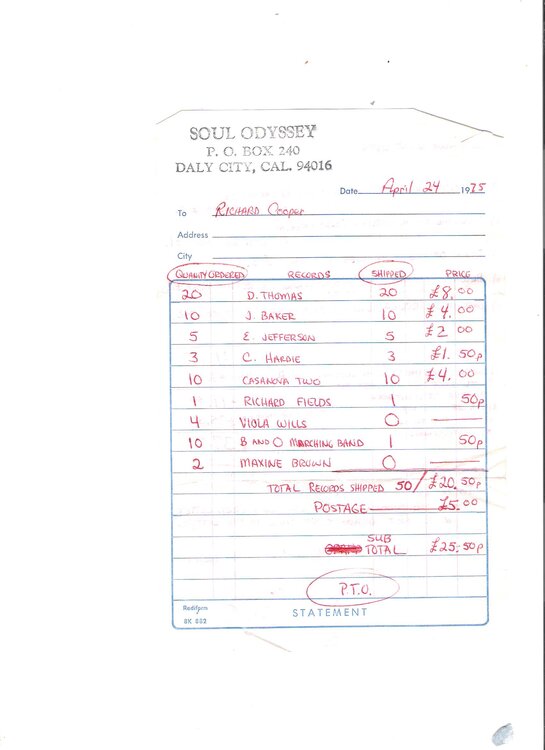 SOUL ODYSSEY
P. O. BOX 240
DALY CITY, CAL. 94016
Date April 24 1975
To RICHARD Cooper
Address
City
QUANTITY ORDERED RECORDS SHIPPED PRICE
20 D. THOMAS 20 £8.00
10 J. BAKER 10 £4.00
5 E. JEFFERSON 5 £2.00
3 C. HARDIE 3 £1.50p
10 CASANOVA TWO 10 £4.00
1 RICHARD FIELDS 1 50p
4 VIOLA WILLS 0
10 B AND O MARCHING BAND 1 50p
2 MAXINE BROWN 0
TOTAL RECORDS SHIPPED 50/ £20.50p
POSTAGE £5.00
SUB
TOTAL £25.50p
P.T.O.
Rediform
8K 882
STATEMENT